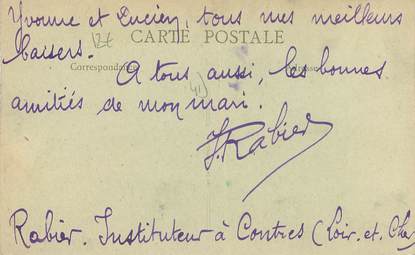 Yvonne et Lucien, tous mes meilleurs
baisers.
CARTE POSTALE
Correspondance
A tous aussi, les bonnes
amitiés de mon mari.
J. Rabier
Rabier. Instituteur à Contres (Loir. et. Che